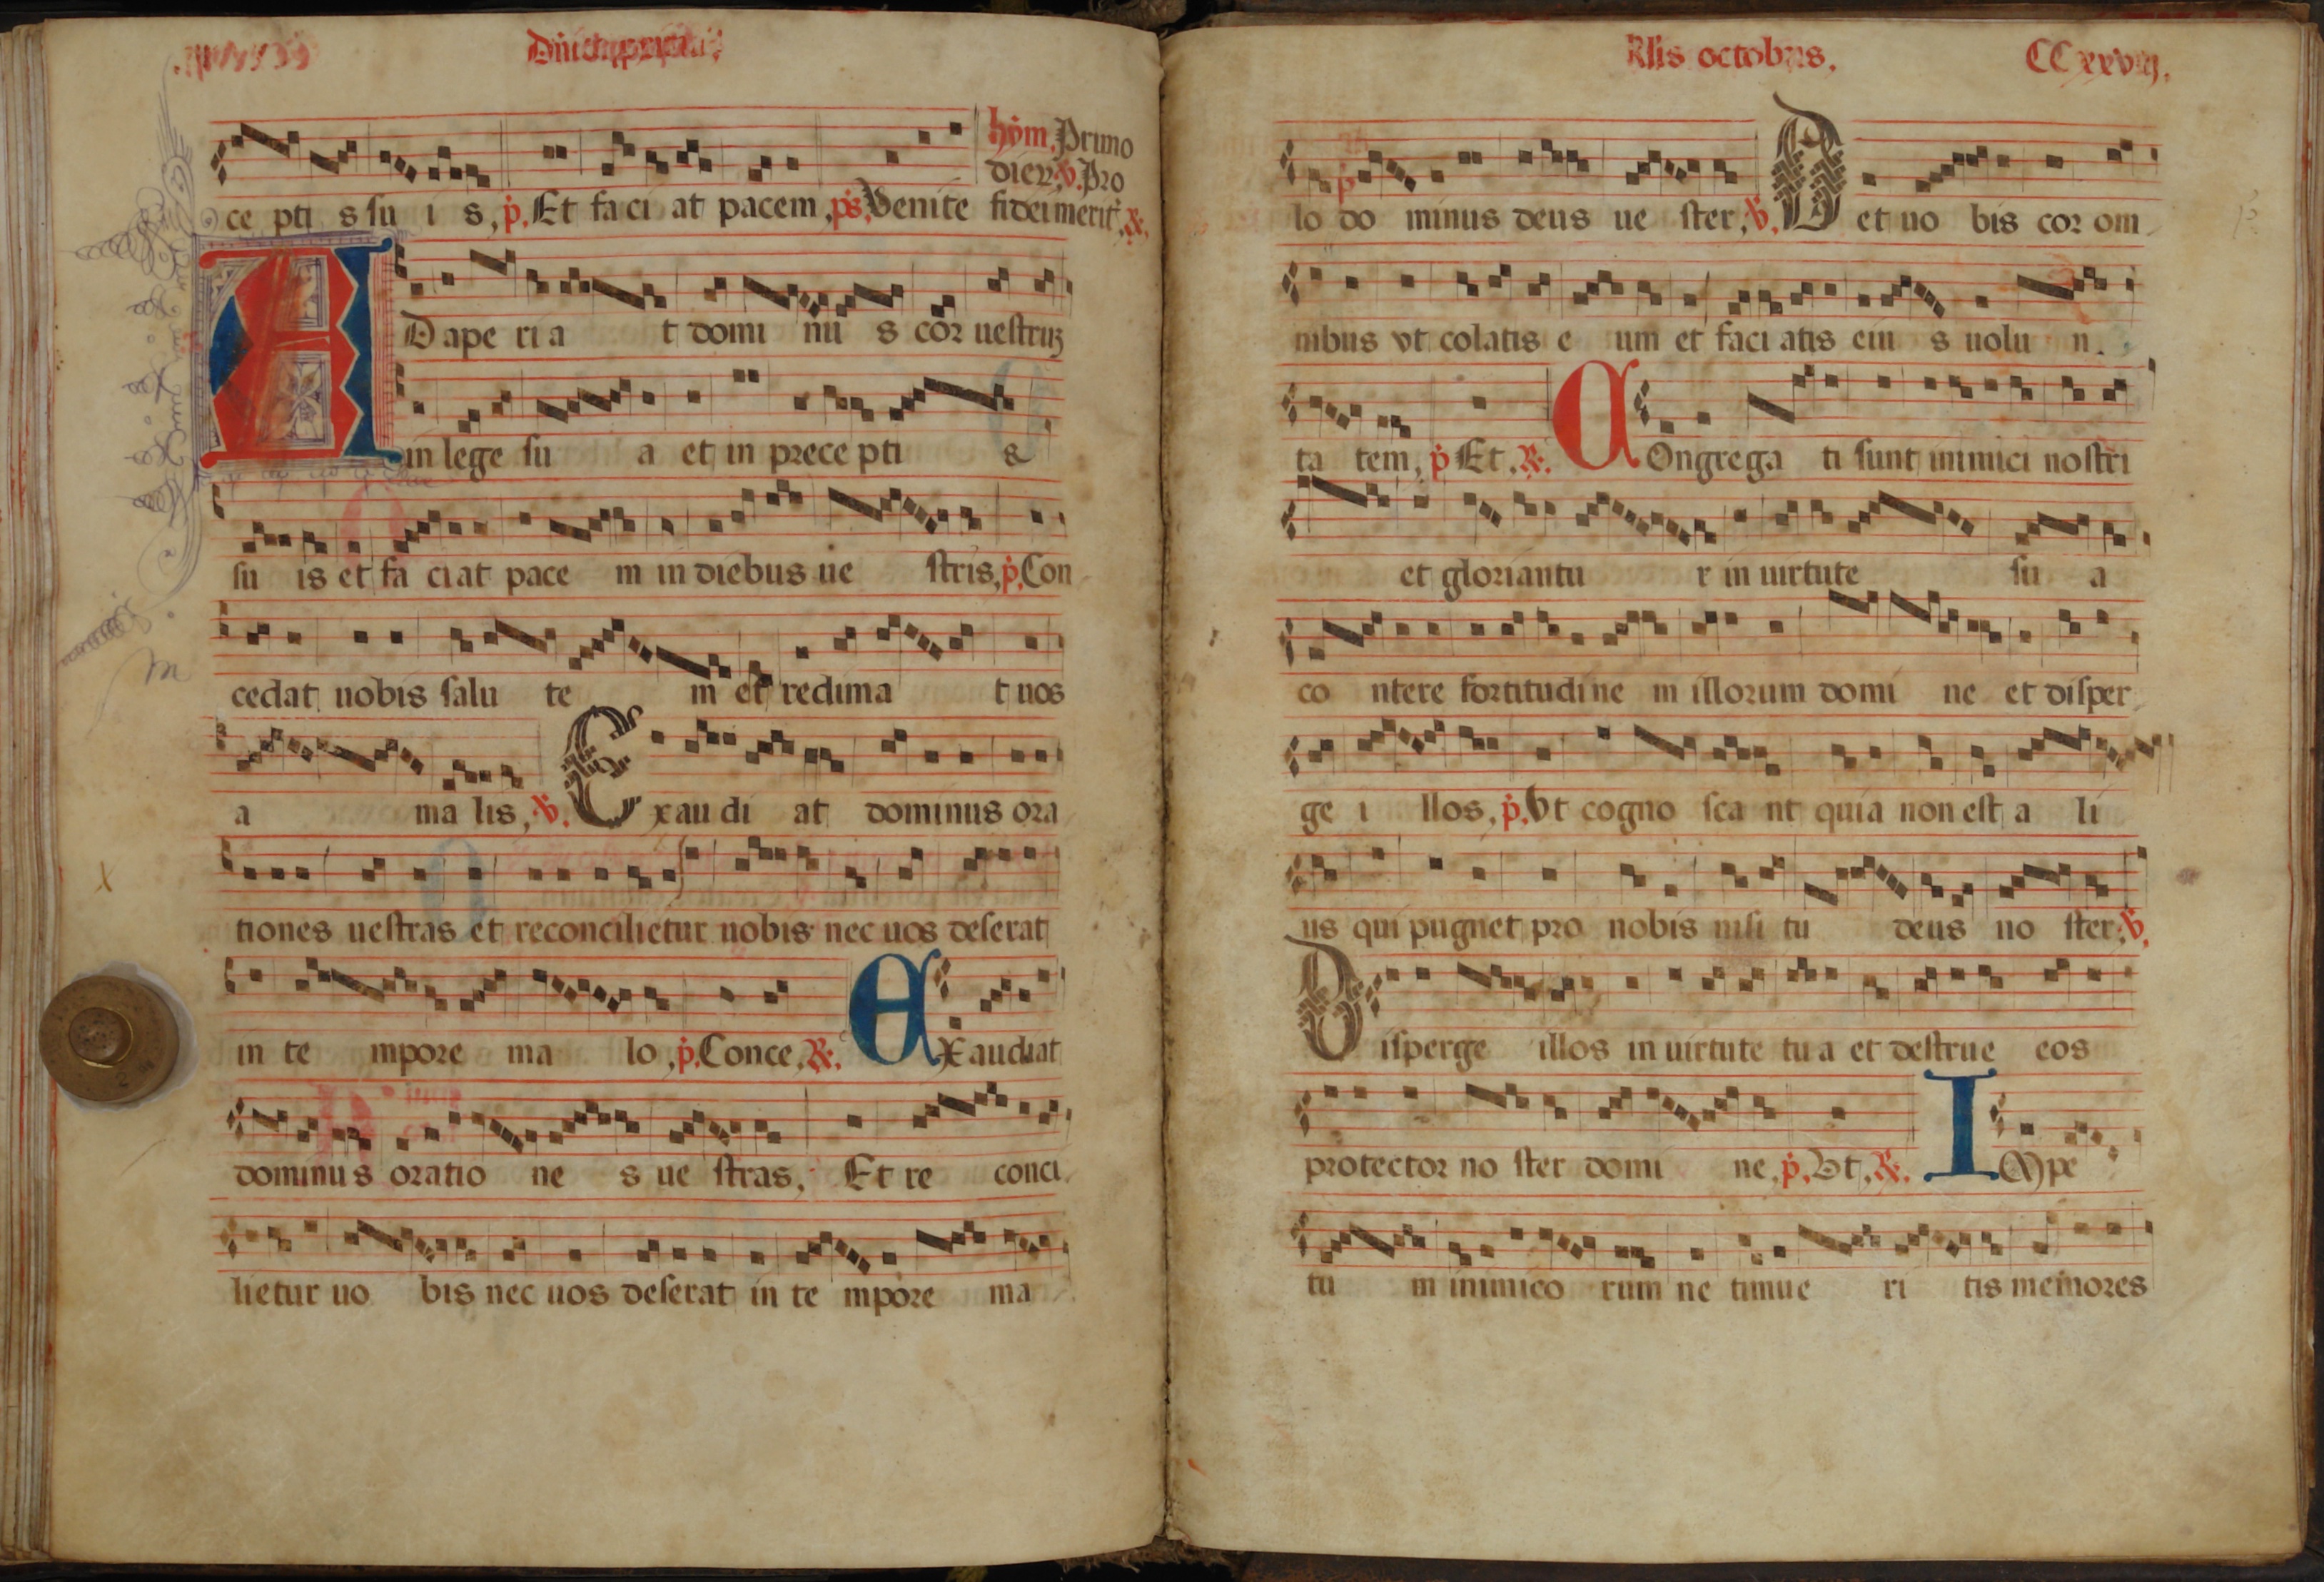 ce pti s su i s, p. Et faci at pacem, ps. Venite
hym. Primo
dieru. v. Pro
fidei merit. R.
ADape ri a t domi nu s cor uestruz
in lege su a et in prece pti s
su is et fa ciat pace m in diebus ue stris, p. Con
cedat uobis salu te m et redima t uos
a ma lis, v. Exau di at dominus ora
tiones uestras et reconcilietur uobis nec uos deserat
in te mpore ma lo, p. Conce, R. EXaudiat
dominus oratio ne s ue stras, Et re conci
lietur uo bis nec uos deserat in te mpore ma
Klis octobris. CCxxviij.
lo do minus deus ue ster, v. Det uo bis cor om
nibus vt colatis e um et faci atis eiu s uolu n
ta tem, p. Et. R. COngrega ti sunt inimici nostri
et gloriantu r in uirtute su a
co ntere fortitudine m illorum domi ne et disper
ge i llos, p. Vt cogno sca nt quia non est a li
us qui pugnet pro nobis nisi tu deus no ster, v.
Disperge illos in uirtute tua et destrue eos
protector no ster domi ne, p. Vt, R. IMpe
tu m inimico rum ne timue ri tis memores